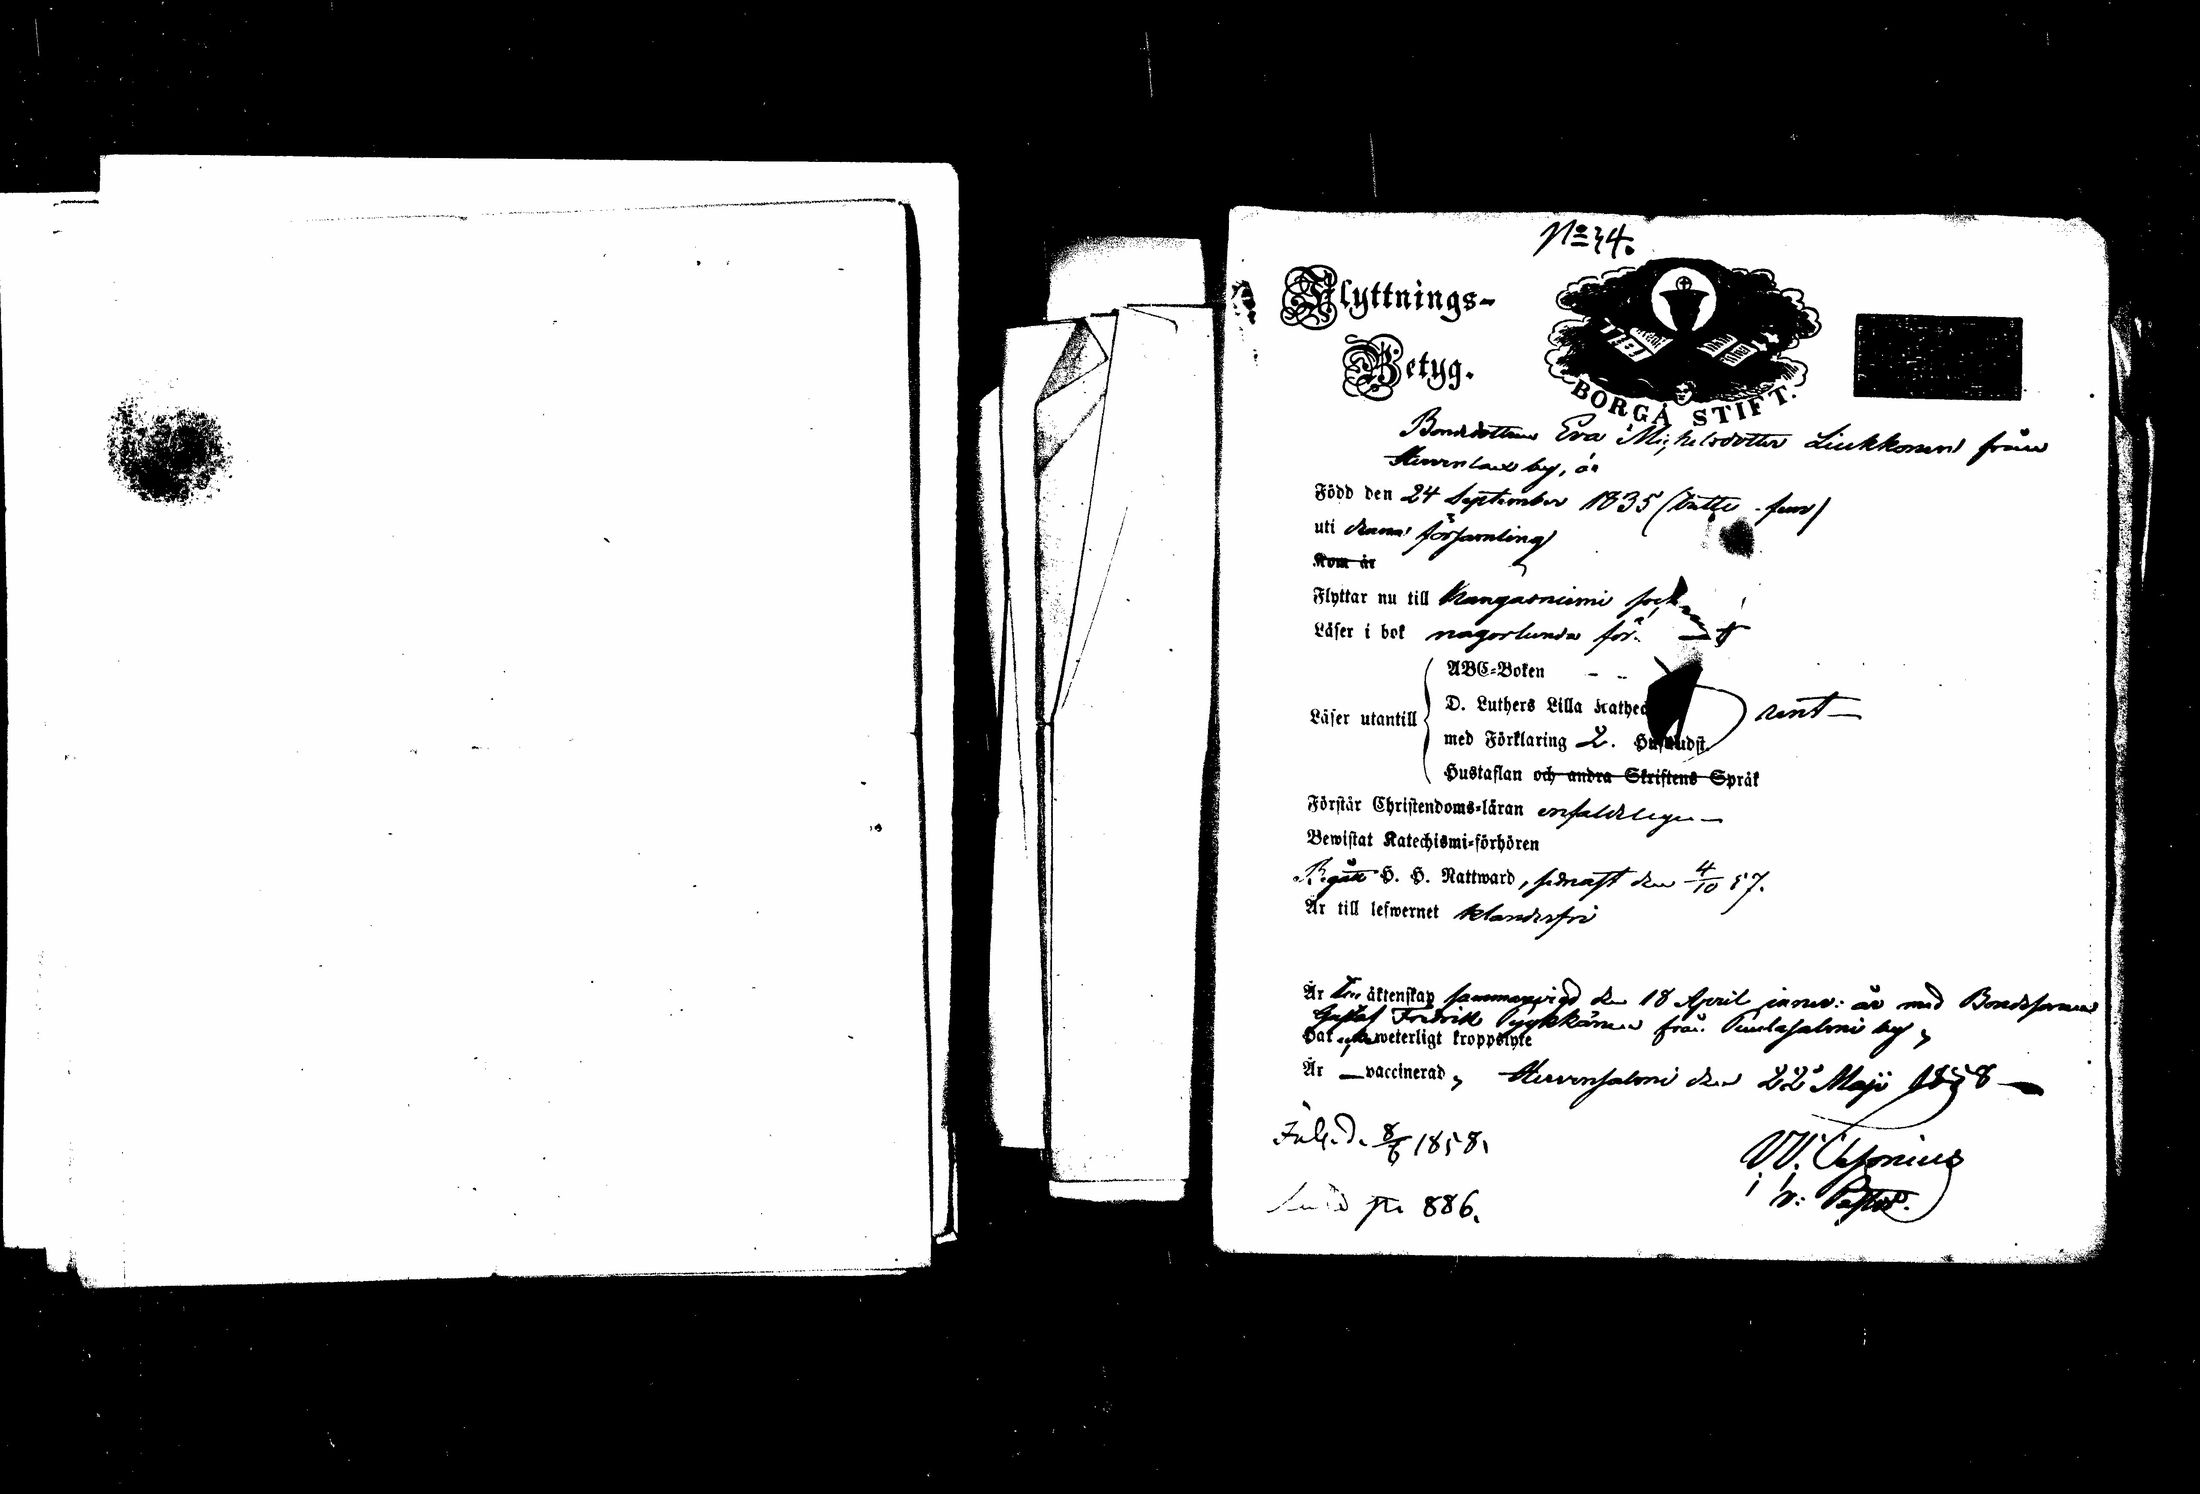 No 34.
Flyttnings-
Betyg.
BORGÅ STIFT.
Bondedottren Eva Michelsdotter Liukkonen från
by, är
Född den 24 September 1835 (trettio fem)
uti denna församling
Kom år
Flyttar nu till Kangasniemi socken
Läser i bok någorlunda för-
ABC-Boken - -
Läser utantill
D. Luthers Lilla Kateches
med Förklaring 2. Husandst.
rent
Hustaflan och andra Skriftens Språk
Förstår Christendoms-läran enfaldeligen
Bewistat Katechismi-förhören
Begått H. H. Nattward, sednast den 4/10 57.
Är till lefwernet klanderfri
Är till äktenskap sammanvigd den 18 April innev: år med Bondesonen
Gustaf Fredrik Pyykkönen från by,
Har weterligt kroppslyte
Är — vaccinerad, Hirvensalmi den 22 Maji 1858
Inl. d. 8/6 1858.
886.
W.
v: Pastor.